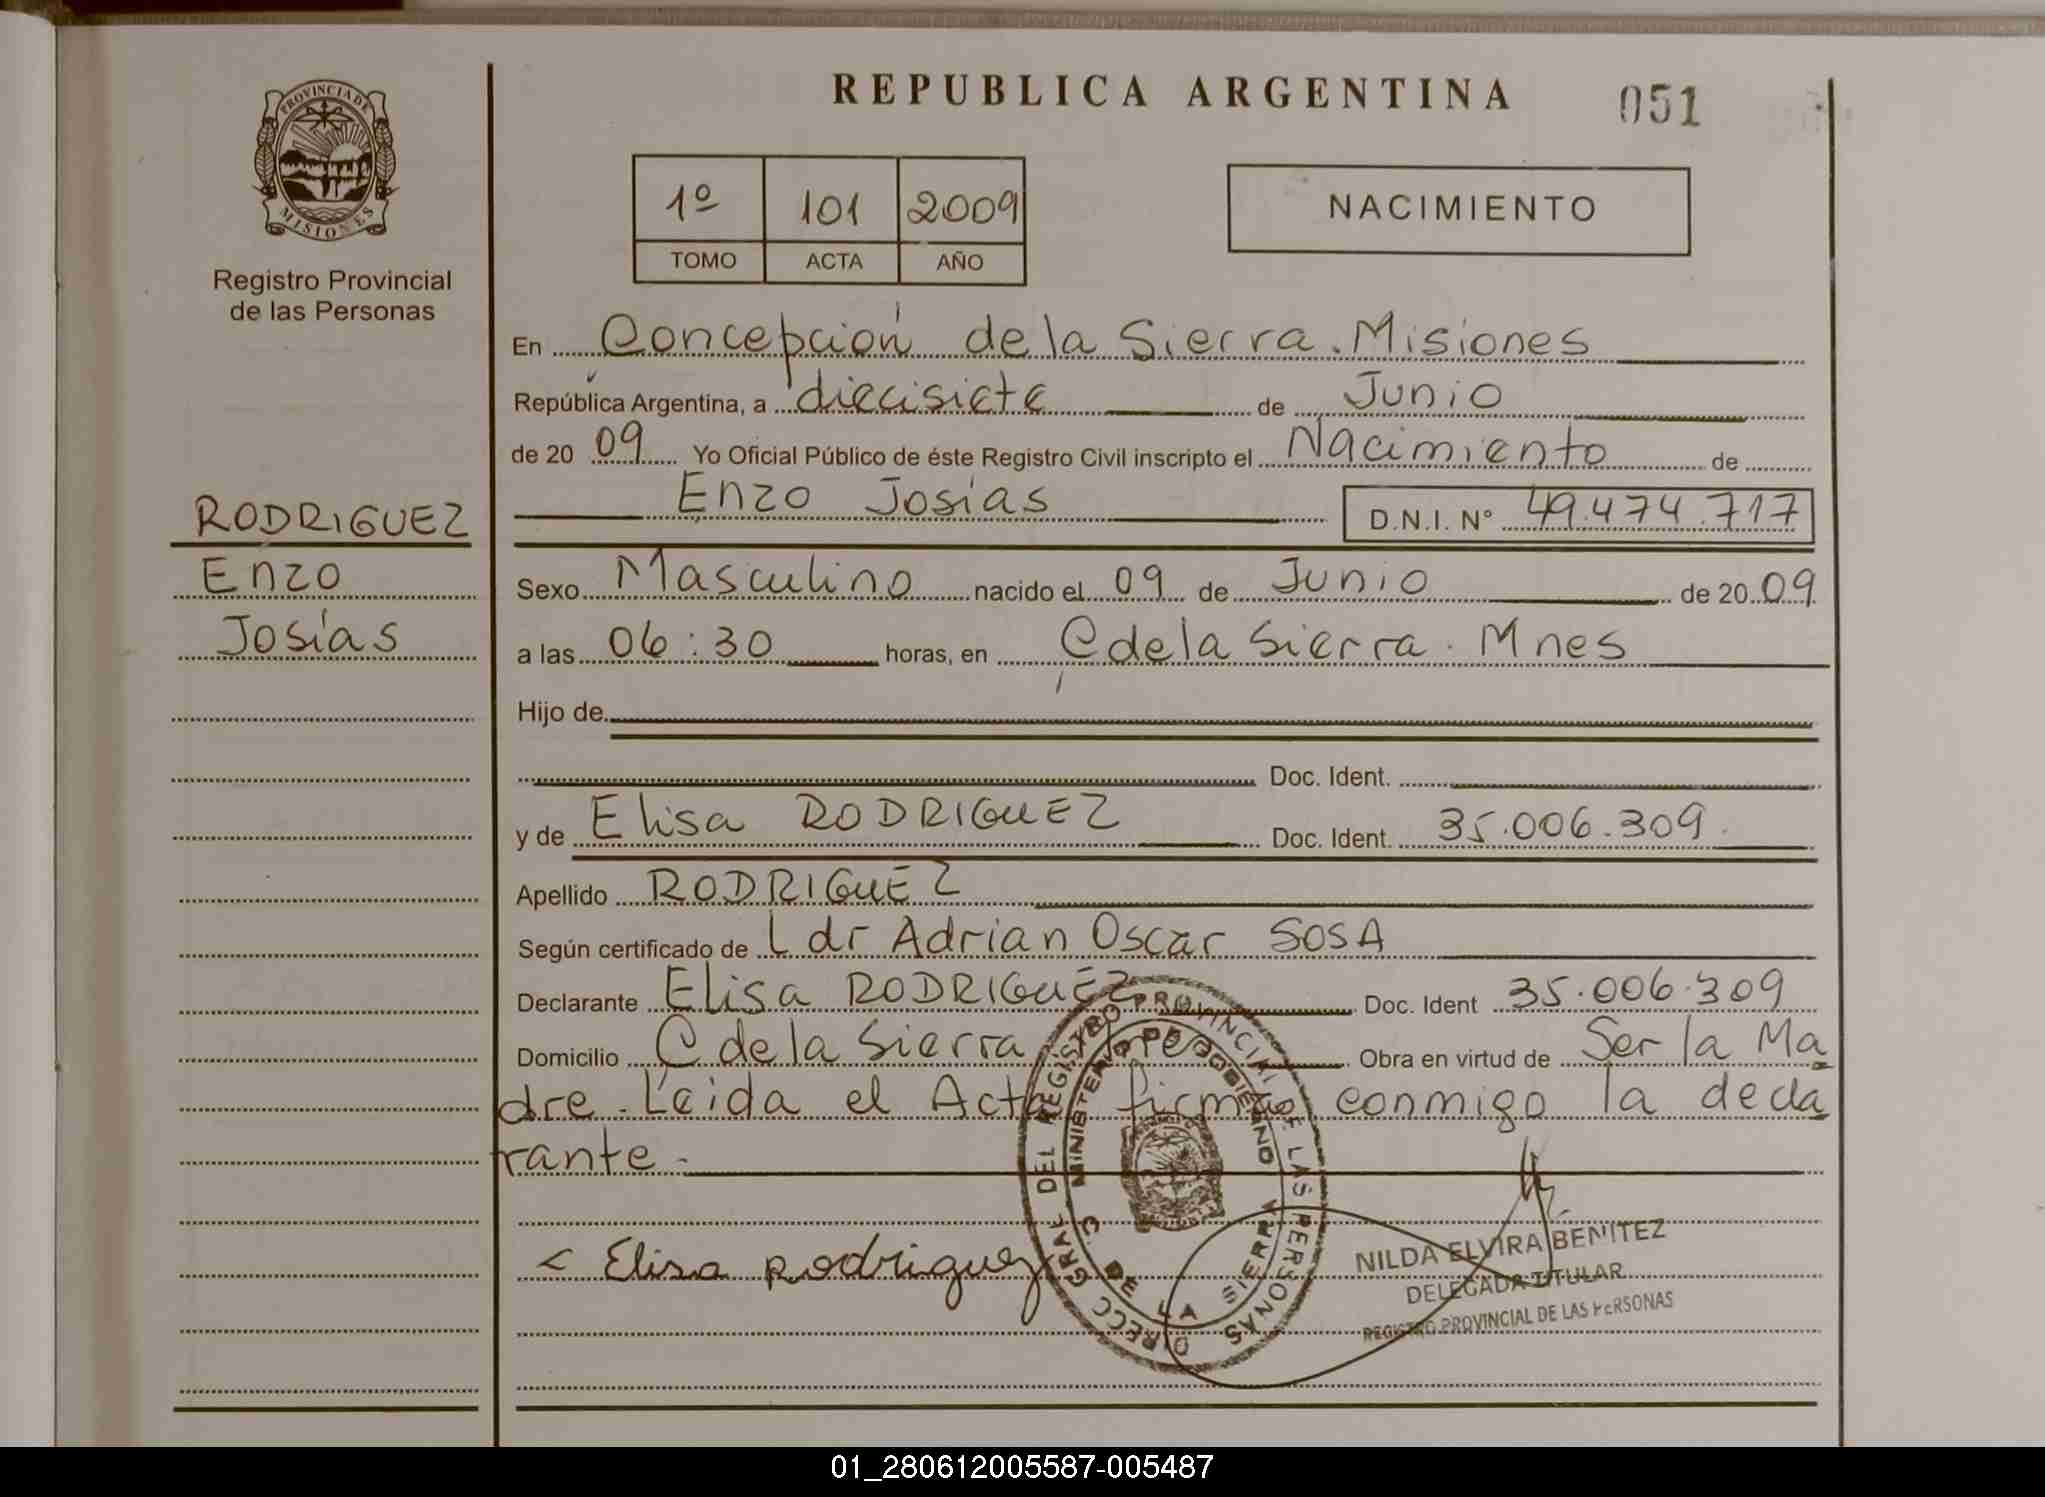 REPUBLICA ARGENTINA
051
PROVINCIA DE
MISIONES
Registro Provincial
de las Personas
1º 101 2009
TOMO ACTA AÑO
NACIMIENTO
En Concepción de la Sierra. Misiones
República Argentina, a diecisiete de Junio
de 20 09 Yo Oficial Público de éste Registro Civil inscripto el Nacimiento de
Enzo Josías
D.N.I. N° 49.474.717
RODRIGUEZ
Enzo
Josías
Sexo Masculino nacido el 09 de Junio de 20 09
a las 06:30 horas, en C de la Sierra. Mnes
Hijo de
Doc. Ident.
y de Elisa RODRIGUEZ Doc. Ident. 35.006.309
Apellido RODRIGUEZ
Según certificado de Ldr Adrian Oscar SOSA
Declarante Elisa RODRIGUEZ Doc. Ident 35.006.309
Domicilio C de la Sierra Mnes Obra en virtud de Ser la Ma
dre. Leida el Acta firma conmigo la decla
rante.
DIRECC GRAL DEL REGISTRO PROVINCIAL DE LAS PERSONAS
MINISTERIO DE GOBIERNO
C. DE LA SIERRA
Elisa rodriguez
NILDA ELVIRA BENITEZ
DELEGADA TITULAR
REGISTRO PROVINCIAL DE LAS PERSONAS
01_280612005587-005487